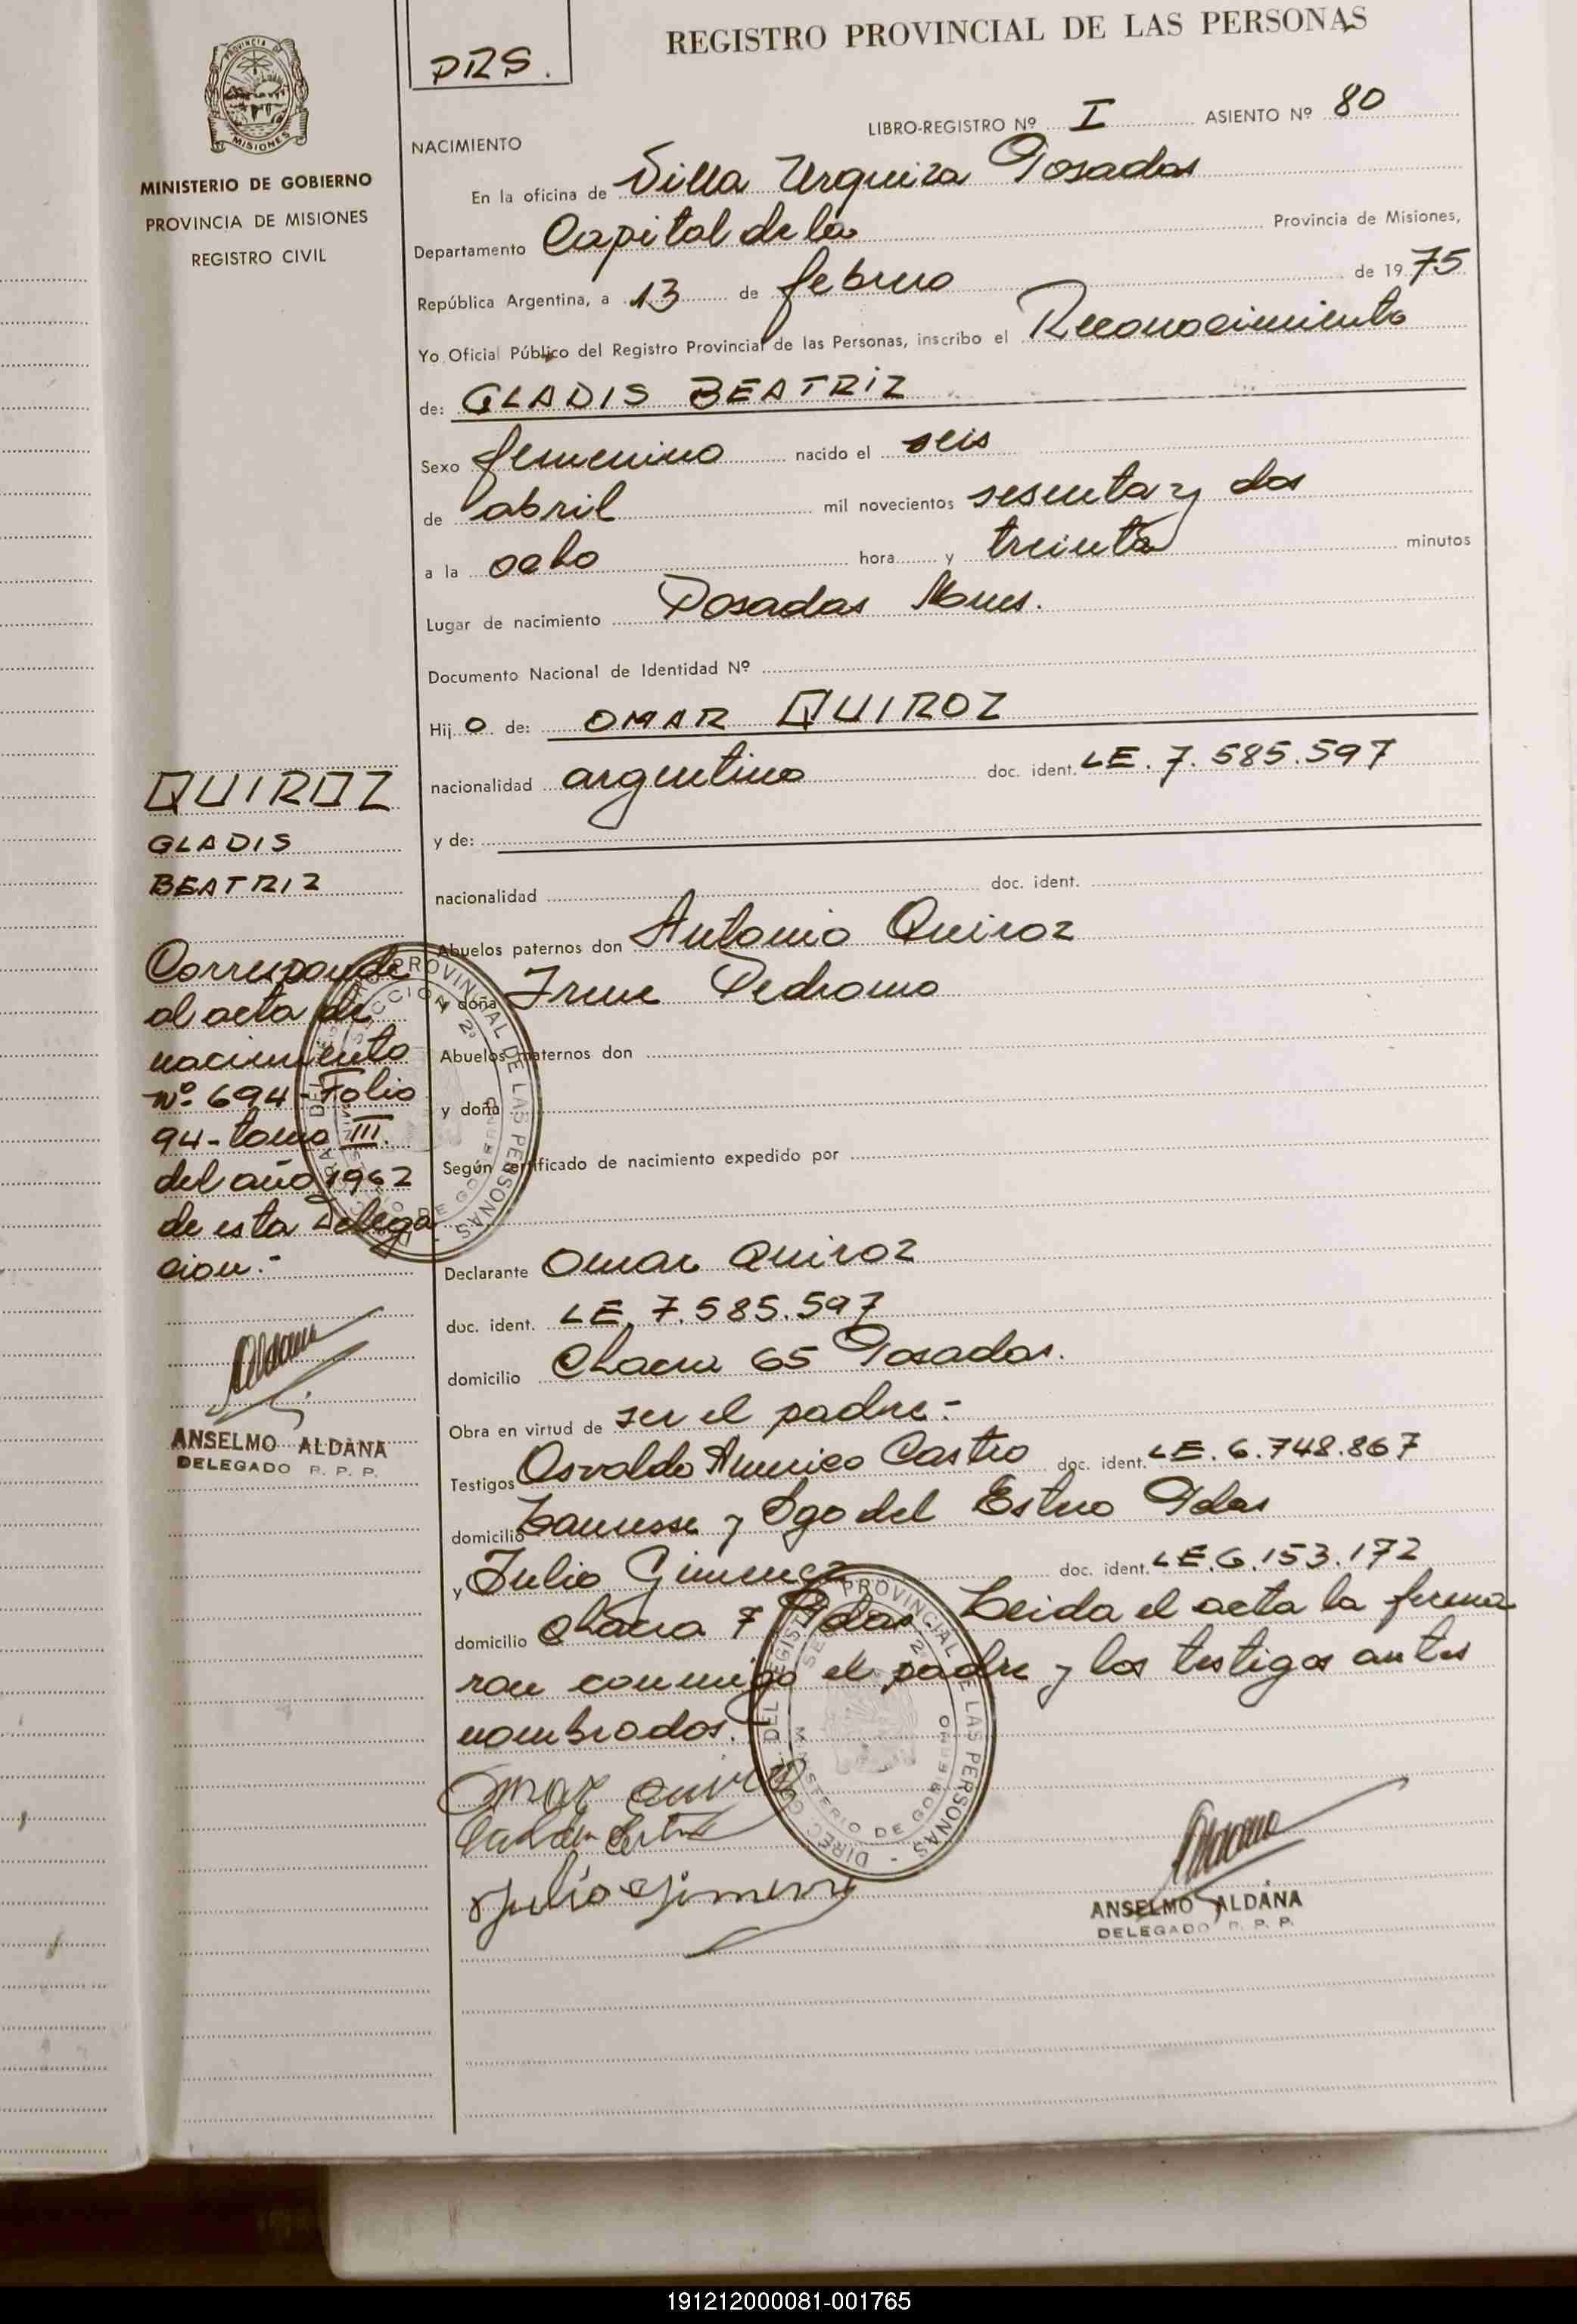 PRS.
REGISTRO PROVINCIAL DE LAS PERSONAS
PROVINCIA DE
MISIONES
MINISTERIO DE GOBIERNO
PROVINCIA DE MISIONES
REGISTRO CIVIL
LIBRO-REGISTRO Nº I ASIENTO Nº 80
NACIMIENTO
En la oficina de Villa Urquiza Posadas
Departamento Capital de la Provincia de Misiones,
República Argentina, a 13 de febrero de 1975
Yo Oficial Público del Registro Provincial de las Personas, inscribo el Reconocimiento
de: GLADIS BEATRIZ
Sexo femenino nacido el seis
de abril mil novecientos sesenta y dos
a la ocho hora y treinta minutos
Lugar de nacimiento Posadas Mnes.
Documento Nacional de Identidad Nº
Hijo de: OMAR QUIROZ
nacionalidad argentino doc. ident. LE. 7.585.597
y de:
nacionalidad doc. ident.
Abuelos paternos don Antonio Quiroz
y doña Irene Pedromo
Abuelos maternos don
y doña
Según certificado de nacimiento expedido por
Declarante Omar Quiroz
doc. ident. LE. 7.585.597
domicilio Chacra 65 Posadas.
Obra en virtud de ser el padre.-
Testigos Osvaldo Americo Castro doc. ident. LE. 6.748.867
domicilio y Sgo del Estero Pdas
y Julio Gimenez doc. ident. LE. 6.153.172
domicilio chacra 7 Pdas Leida el acta la firma
ron conmigo el padre y los testigos antes
nombrados.
Omar Quiroz
Julio Gimenez
ANSELMO ALDANA
DELEGADO R. P. P.
QUIROZ
GLADIS
BEATRIZ
Corresponde
al acta de
nacimiento
Nº 694-Folio
94-tomo III.
del año 1962
de esta Delega
cion.-
ANSELMO ALDANA
DELEGADO R. P. P.
DIREC. GRAL. DEL REGISTRO PROVINCIAL DE LAS PERSONAS
SECCION 2ª
MINISTERIO DE GOBIERNO
DIREC. GRAL. DEL REGISTRO PROVINCIAL DE LAS PERSONAS
MINISTERIO DE GOBIERNO
191212000081-001765